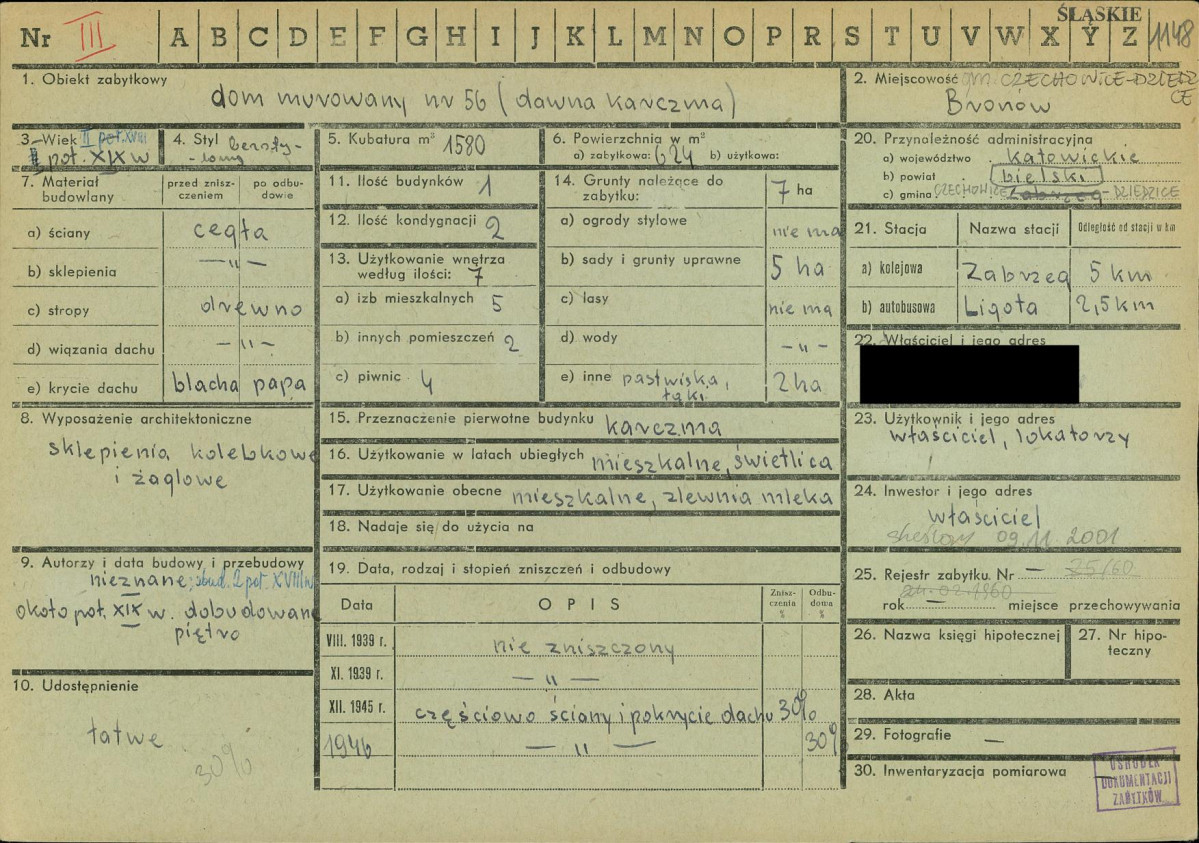 Nr III A B C D E F G H I J K L M N O P R S T U V W X Y Z ŚLĄSKIE 1148
1. Obiekt zabytkowy
dom murowany nr 56 (dawna karczma)
2. Miejscowość gm. CZECHOWICE-DZIEDZICE
Bronów
3. Wiek II poł. XVIII
II poł. XIX w
4. Styl bezsty-
-lowy
5. Kubatura m³ 1580
6. Powierzchnia w m²
a) zabytkowa: 624 b) użytkowa:
7. Materiał budowlany
przed zniszczeniem
po odbudowie
a) ściany cegła
b) sklepienia — „ —
c) stropy drewno
d) wiązania dachu — „ —
e) krycie dachu blacha papa
8. Wyposażenie architektoniczne
sklepienia kolebkowe
i żaglowe
9. Autorzy i data budowy i przebudowy
nieznane; zbud. 2 poł. XVIII w
około poł. XIX w. dobudowane
piętro
10. Udostępnienie
łatwe
30%
11. Ilość budynków 1
12. Ilość kondygnacji 2
13. Użytkowanie wnętrza
według ilości: 7
a) izb mieszkalnych 5
b) innych pomieszczeń 2
c) piwnic 4
14. Grunty należące do
zabytku: 7 ha
a) ogrody stylowe nie ma
b) sady i grunty uprawne 5 ha
c) lasy nie ma
d) wody — „ —
e) inne pastwiska, łąki 2 ha
15. Przeznaczenie pierwotne budynku karczma
16. Użytkowanie w latach ubiegłych mieszkalne, świetlica
17. Użytkowanie obecne mieszkalne, zlewnia mleka
18. Nadaje się do użycia na
19. Data, rodzaj i stopień zniszczeń i odbudowy
Data OPIS Zniszczenia % Odbudowa %
VIII. 1939 r. nie zniszczony
XI. 1939 r. — „ —
XII. 1945 r. częściowo ściany i pokrycie dachu 30%
1946 — „ — 30%
20. Przynależność administracyjna
a) województwo katowickie
b) powiat bielski
c) gmina CZECHOWICE Zabrzeg - DZIEDZICE
21. Stacja Nazwa stacji Odległość od stacji w km
a) kolejowa Zabrzeg 5 km
b) autobusowa Ligota 2,5 km
22. Właściciel i jego adres
23. Użytkownik i jego adres
właściciel, lokatorzy
24. Inwestor i jego adres
właściciel
skreślony 09.11.2001
25. Rejestr zabytku. Nr — 25/60
24.02.1960
rok — miejsce przechowywania
26. Nazwa księgi hipotecznej
27. Nr hipoteczny
28. Akta
29. Fotografie —
30. Inwentaryzacja pomiarowa —
OŚRODEK
DOKUMENTACJI
ZABYTKÓW